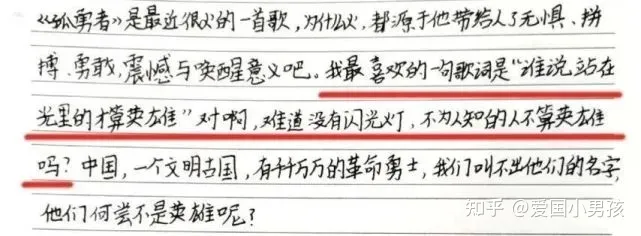 《孤勇者》是最近很火的一首歌,为什么火,都源于他带给人了无惧、拼
搏、勇敢,震憾与唤醒意义吧。我最喜欢的一句歌词是“谁说站在
光里的才算英雄”对啊,难道没有闪光灯,不为人知的人不算英雄
吗?中国,一个文明古国,有千千万万的革命勇士,我们叫不出他们的名字,
他们何尝不是英雄呢?
知乎 @爱国小男孩